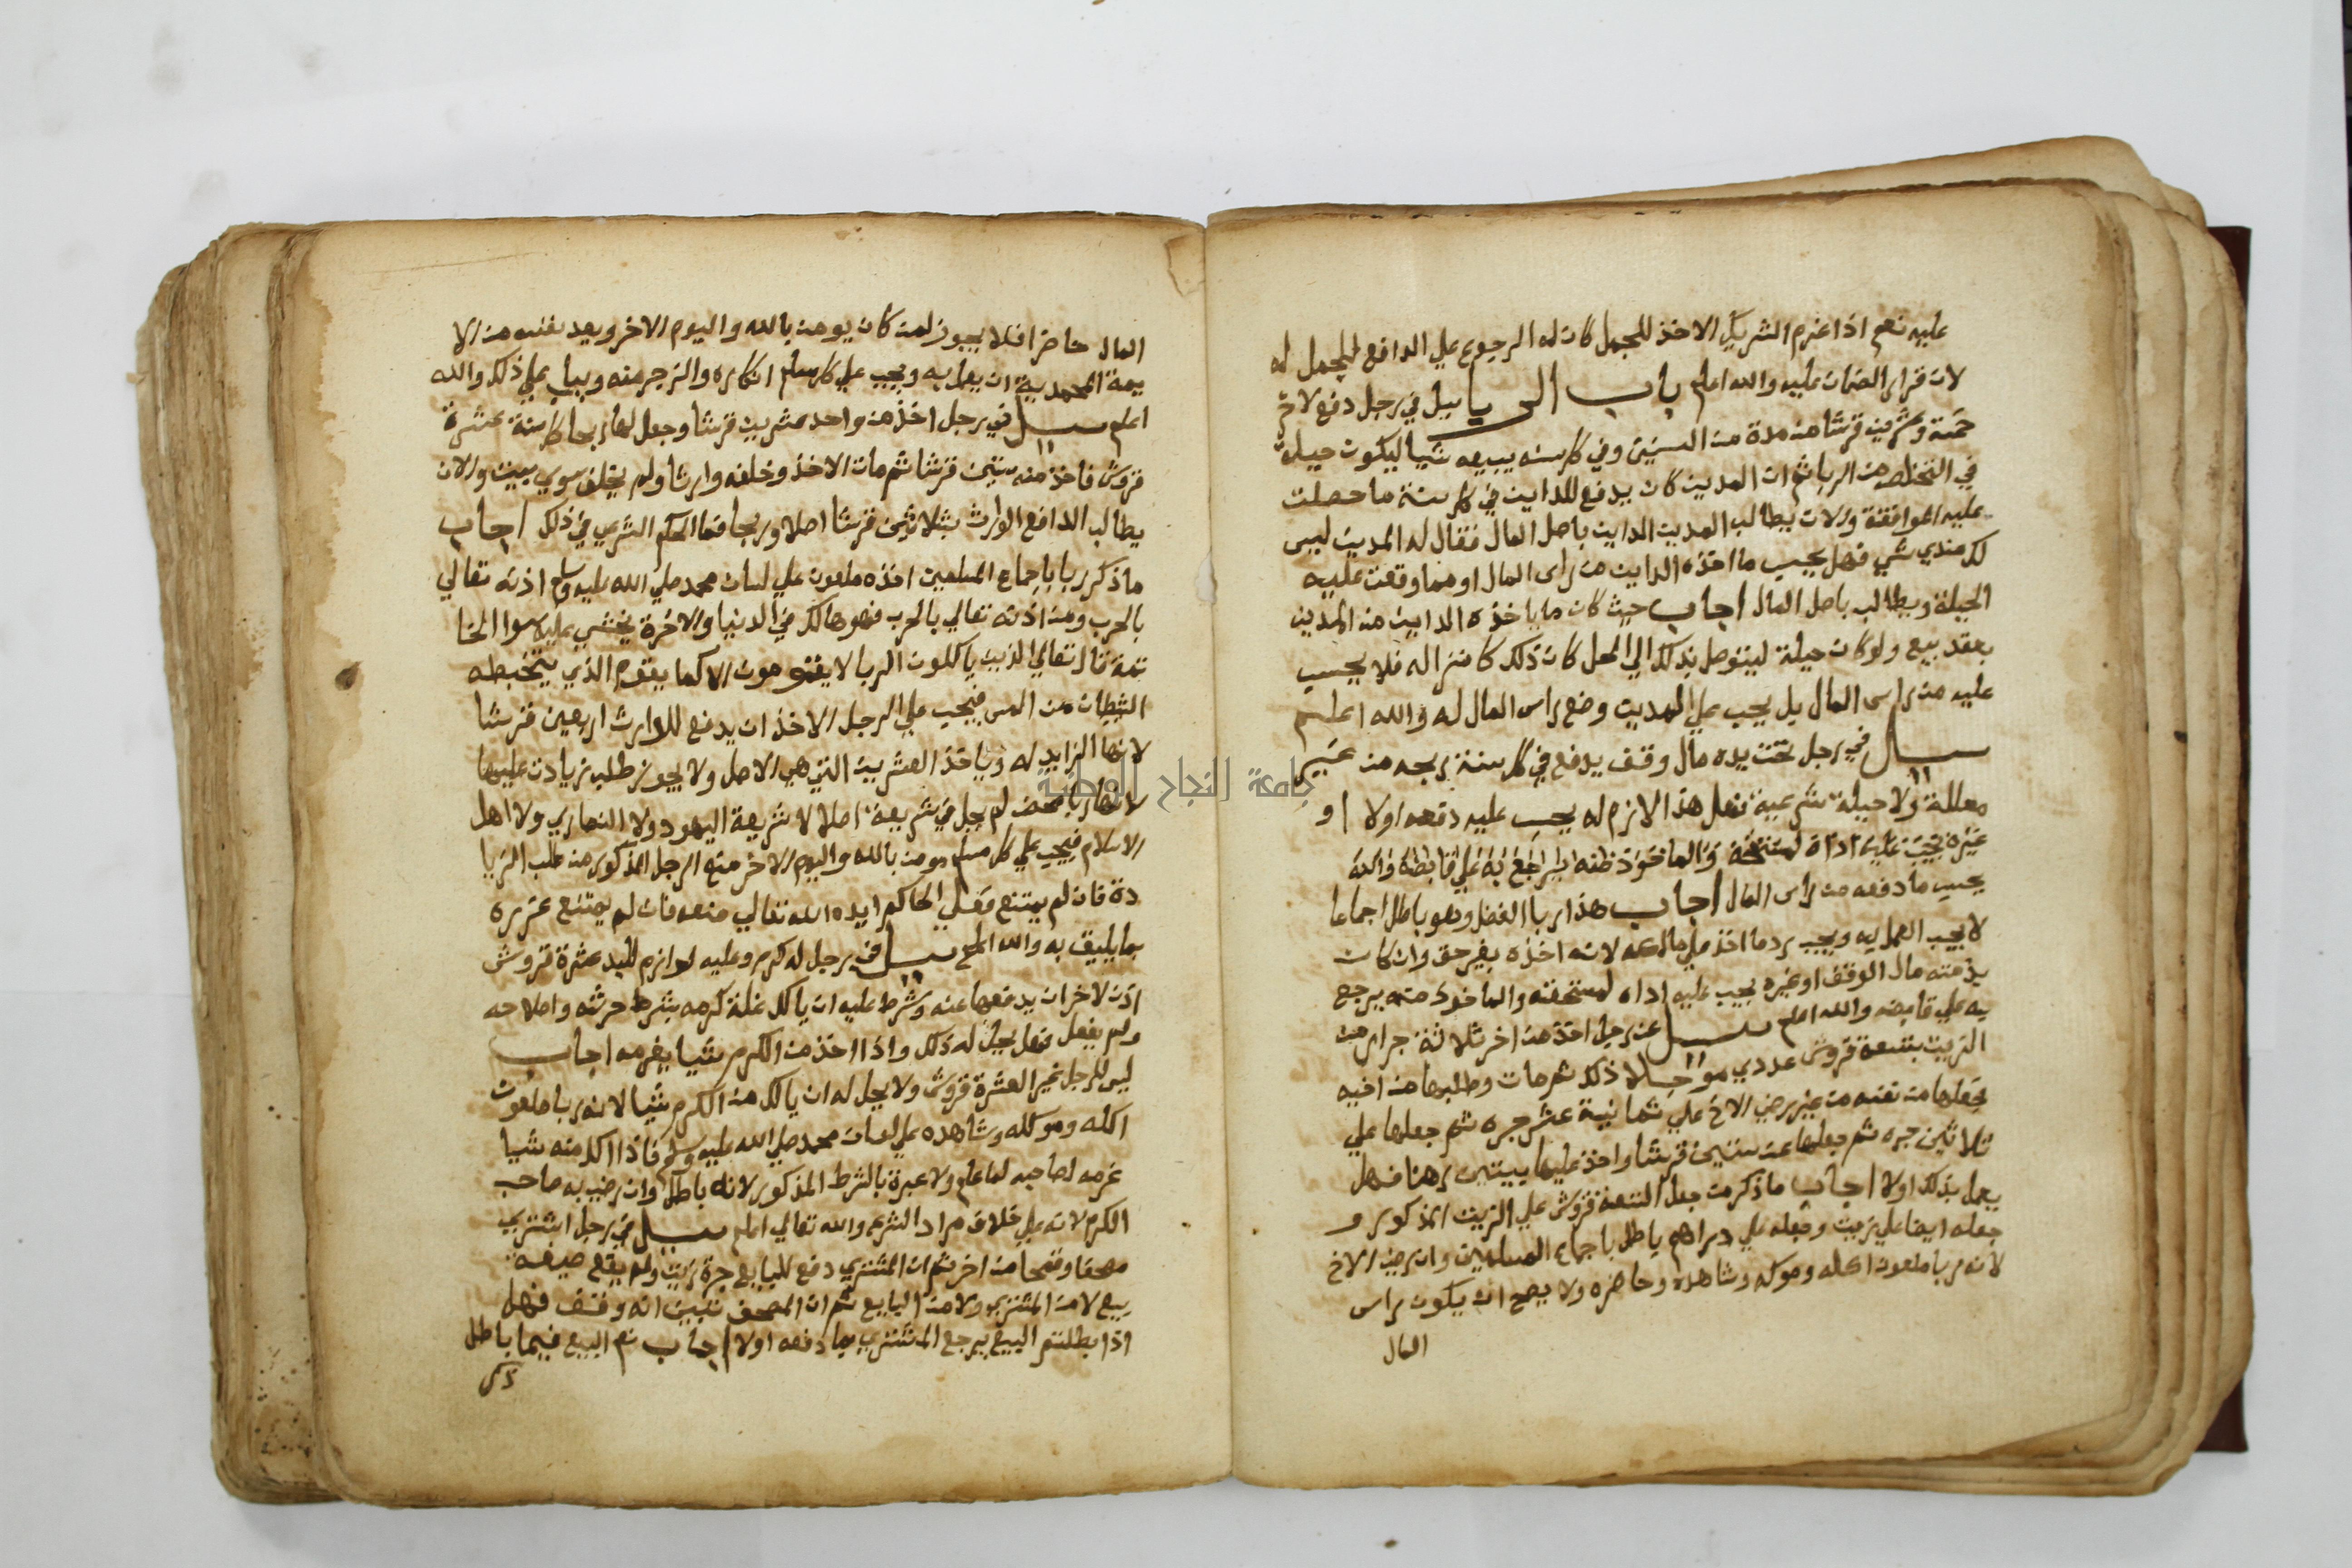 عليه نعم اذا غرم الشريك الاخذ للجمل كان له الرجوع علي الدافع للجمل له
لان قرار الضمان عليه والله اعلم باب الربا سيل في رجل دفع لاخر
خمسة وعشرين قرشا من مدة من السنين وفي كل سنه يبيعه شيا ليكون حيلة
في التخلص من الربا ثم ان المدين كان يدفع للداين في كل سنة ما حصلت
عليه الموافقة والان يطالب المدين الداين باصل المال فقال له المدين ليس
لك عندي شي فهل يحسب ما اخذه الداين من راس المال او مما وقعت عليه
الحيلة ويطالب باصل المال اجاب حيث كان ما ياخذه الداين من المدين
بعقد بيع ولو كان حيلة ليتوصل بذلك الي الحل كان ذلك كافرا له فلا يحسب
عليه من راس المال بل يجب علي المدين وضع راس المال له والله اعلم
سيل في رجل تحت يده مال وقف يدفع في كل سنة ربحه من غير
معاملة ولا حيلة شرعية فهل هذا لازم له يحسب عليه دفعه اولا او
غيره يجب عليه اداه لمستحقه والماخوذ ظنه يراجع به علي قابضه والله
يحسب ما دفعه من راس المال اجاب هذا ربا الفضل وهو باطل اجماعا
لا يجب العمل به ويجب رد ما اخذ علي مالكه لانه اخذه بغير حق وان كان
بذمته مال الوقف او غيره يجب عليه اداه لمستحقه والماخوذ منه يرجع
به علي قابضه والله اعلم سيل عن رجل اخذ من اخر ثلاثة جرار من
الزيت بتسعة قروش عددي موجلا ذلك ثم مات وطلبها من اخيه
فجعلها من نفسه من غير رضي الاخ علي ثمانية عشر جره ثم جعلها علي
ثلاثين جره ثم جعلها عن ستين قرشا واخذ عليها بيتين رهنا فهل
يعمل بذلك اولا اجاب ما ذكر من جعل التسعة قروش علي الزيت المذكور و
جعله ايضا علي زيت وجعله علي دراهم باطل باجماع المسلمين وان رضي الاخ
لانه ربا ملعون اكله وموكله وشاهده وحاضره ولا يصح ان يكون براس
المال
المال حاضرا فلا يجوز لمن كان يومن بالله واليوم الاخر ويعد نفسه من الا
يمة المحمدية ان يعمل به ويجب علي كل مسلم انكاره والزجر منه ويثاب علي ذلك والله
اعلم سيل في رجل اخذ من واحد عشرين قرشا وجعل لها ربحا كل سنة عشرة
قروش فاخذ منه ستين قرشا ثم مات الاخذ وخلفه وارثا ولم يخلف سوي بيت والان
يطالب الدافع الوارث بثلاثين قرشا اصلا وربحا فما الحكم الشرعي في ذلك اجاب
ما ذكر ربا باجماع المسلمين اخذه ملعون علي لسان محمد صلي الله عليه وسلم اذنه تعالي
بالحرب ومن اذنه تعالي بالحرب فهو هالك في الدنيا والاخرة يخشي عليه سوا الخا
تمة قال تعالي الذين ياكلون الربا لا يقومون الا كما يقوم الذي يتخبطه
الشيطان من المس فيجب علي الرجل الاخذ ان يدفع للوارث اربعين قرشا
لانها الزايد له وياخذ العشرين التي هي الاصل ولا يجوز طلب زيادت عليها
لانها ربا محض لم يحل في شريعة اصلا لا شريعة اليهود ولا النصاري ولا اهل
الاسلام فيجب علي كل مسلم مومن بالله واليوم الاخر منع الرجل المذكور من طلب الزيا
دة فان لم يمتنع فعلي الحاكم ايده الله تعالي منعه فان لم يمتنع عزره
بما يليق به والله اعلم سيل في رجل له كرم وعليه لوازم للبلد عشرة قروش
اذن لاخر ان يدفعها عنه وشرط عليه ان ياكل غلة كرمه بشرط حرثه واصلاحه
ولم يفعل فهل يحل له ذلك واذا اخذ من الكرم شيا يغرمه اجاب
ليس للرجل غير العشرة قروش ولا يحل له ان ياكل من الكرم شيا لانه ربا ملعون
اكله وموكله وشاهده علي لسان محمد صلي الله عليه وسلم فاذا اكل منه شيا
غرمه لصاحبه لما علم ولا عبرة بالشرط المذكور لانه باطل وان رضي به صاحب
الكرم لانه علي خلاف مراد الشرع والله تعالي اعلم سيل في رجل اشتري
مصحفا وقمحا من اخر ثم ان المشتري دفع للبايع جرة زيت ولم يقع صيغة
بيع لا من المشتري ولا من البايع ثم ان المصحف تبين انه وقف فهل
اذا بطلتم البيع يرجع المشتري بما دفعه اولا اجاب نعم البيع فيهما باطل
ذكر
جامعة النجاح الوطنية